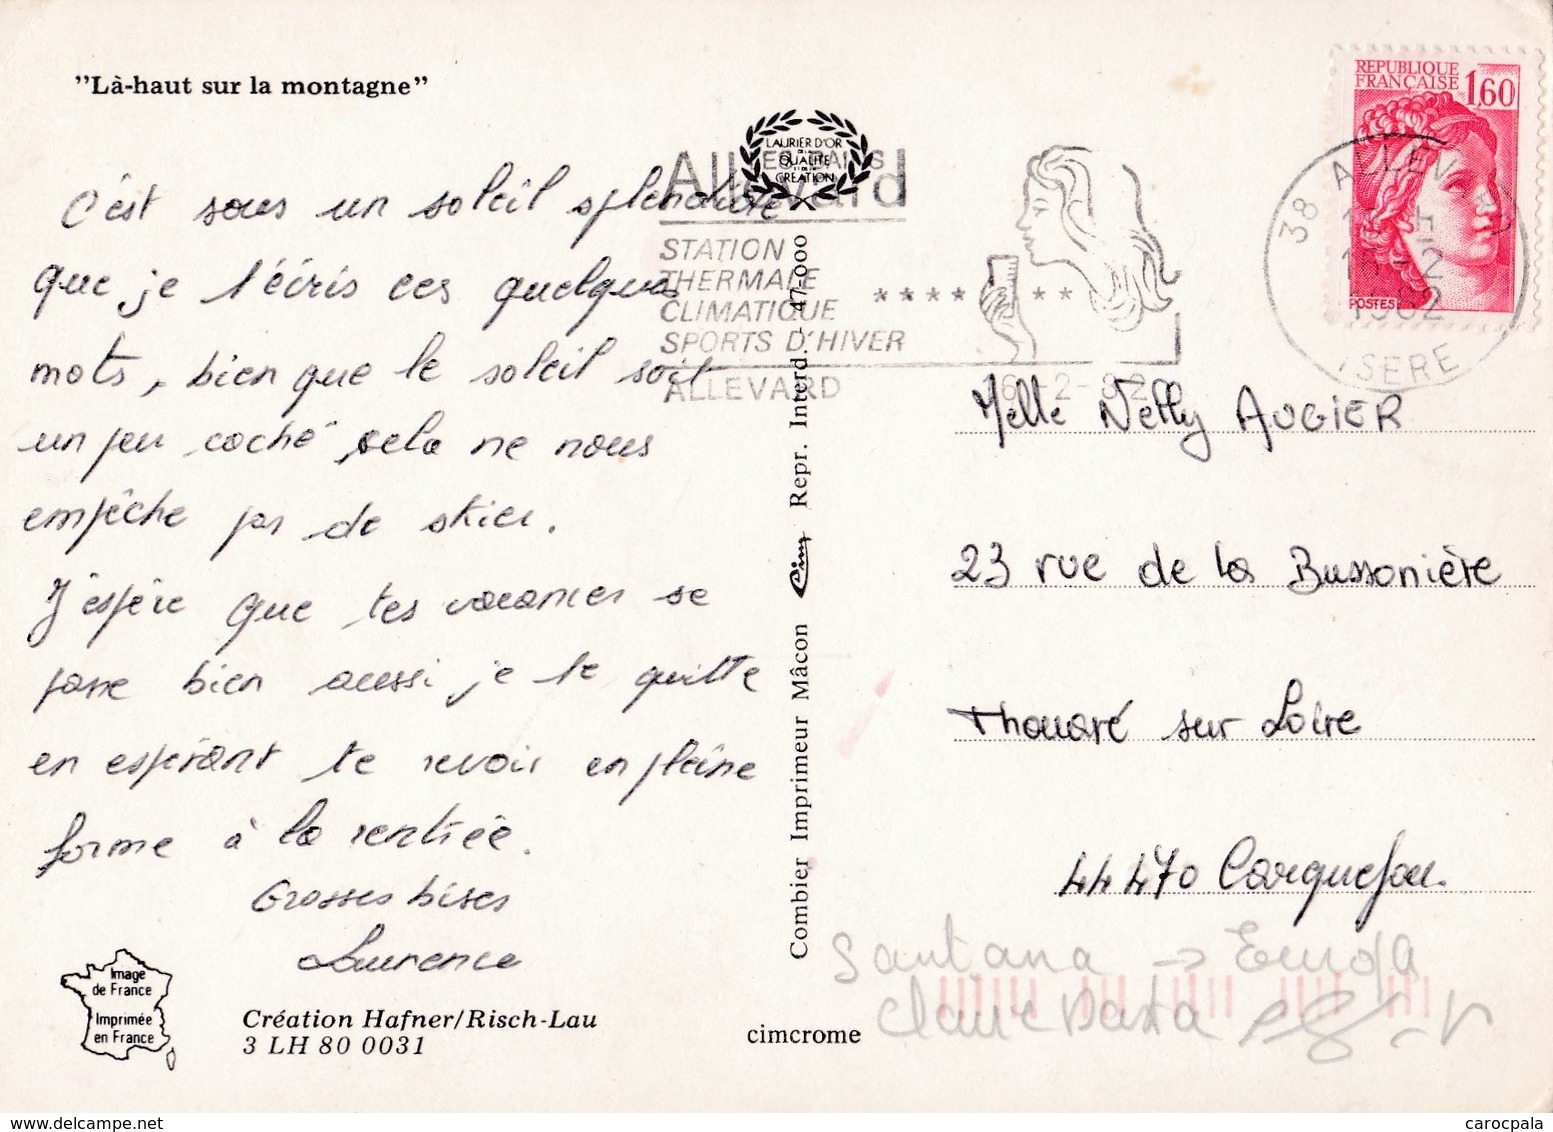 "Là-haut sur la montagne"
C'est sous un soleil splendide
que je t'écris ces quelques
mots, bien que le soleil soit
un peu caché cela ne nous
empêche pas de skier.
J'espère que tes vacances se
passe bien aussi je te quitte
en espérant te revoir en pleine
forme à la rentrée.
Grosses bises
Laurence
Image
de France
Imprimée
en France
Création Hafner/Risch-Lau
3 LH 80 0031
LAURIER D'OR
DE LA
QUALITÉ
CRÉATION
Combier Imprimeur Mâcon Cim Repr. Interd. - 47.000
cimcrome
Allevard
LES BAINS
STATION
THERMALE
CLIMATIQUE
SPORTS D'HIVER
ALLEVARD
16-2-82
****  **
REPUBLIQUE
FRANÇAISE 1,60
POSTES
38 ALLEVARD
16-2
1982
ISERE
Melle Nelly AUGIER
23 rue de la Bussonière
Thouaré sur Loire
44470 Carquefou.
Santana →
Claire
carocpala